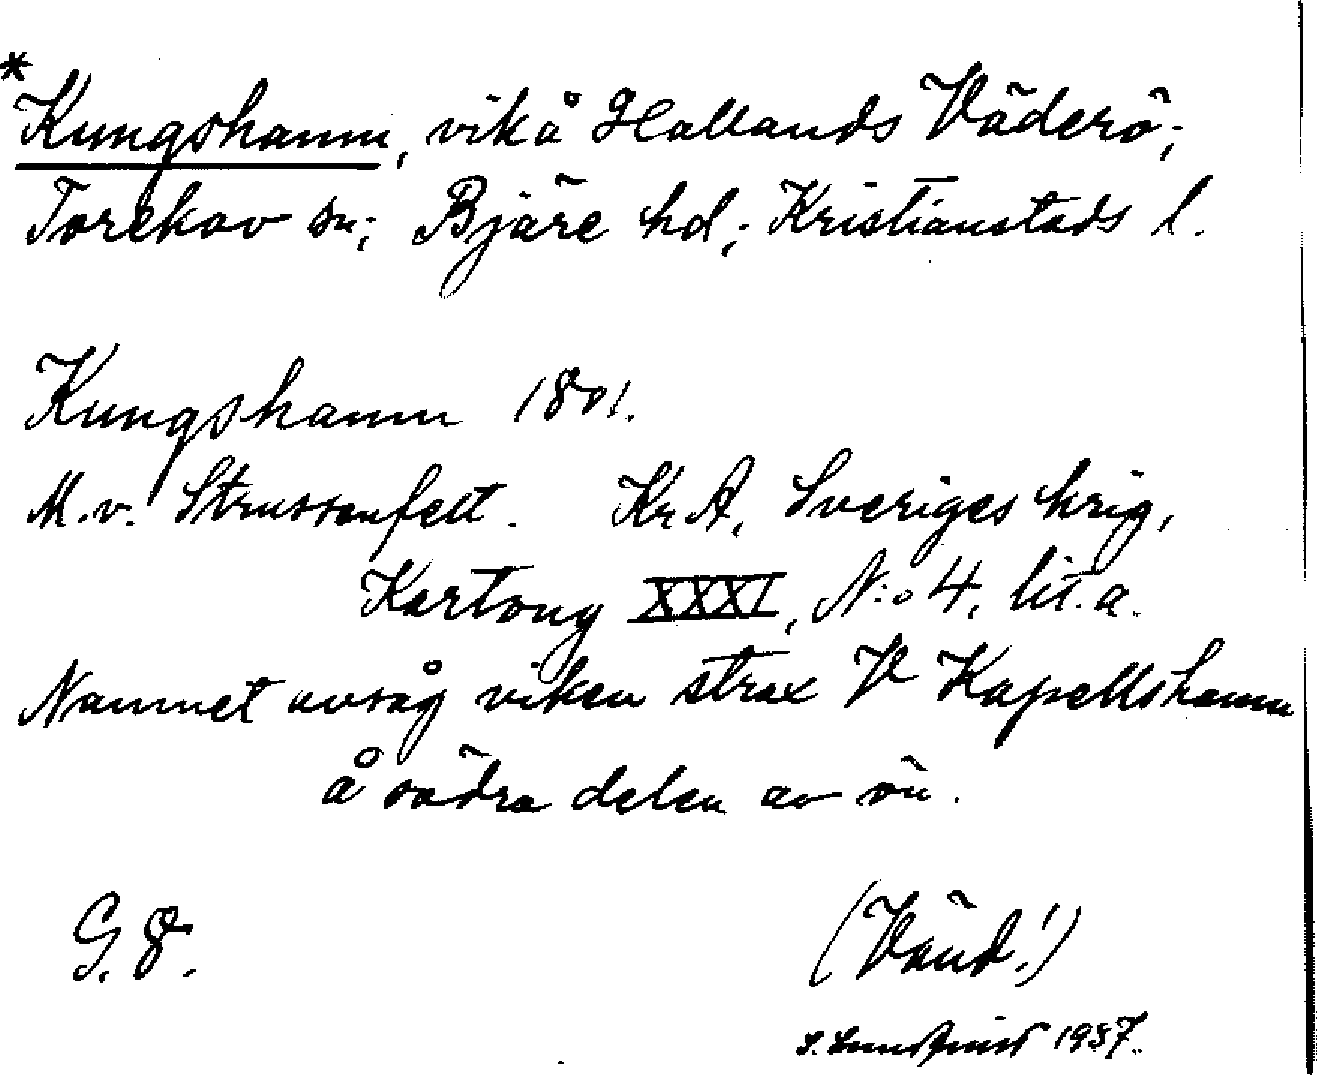 *Kungshamn, vik å Hallands Väderö;
Torekov sn; Bjäre hd; Kristianstads l.
Kungshamn 1801.
M.v. Strussenfelt. KrA, Sveriges krig,
Kartong XXXI, N:o 4, lit. a.
Namnet avsåg viken strax V Kapellshamn
å södra delen av ön.
G. 8.
(Vänd!)
S. Lundqvist 1937.